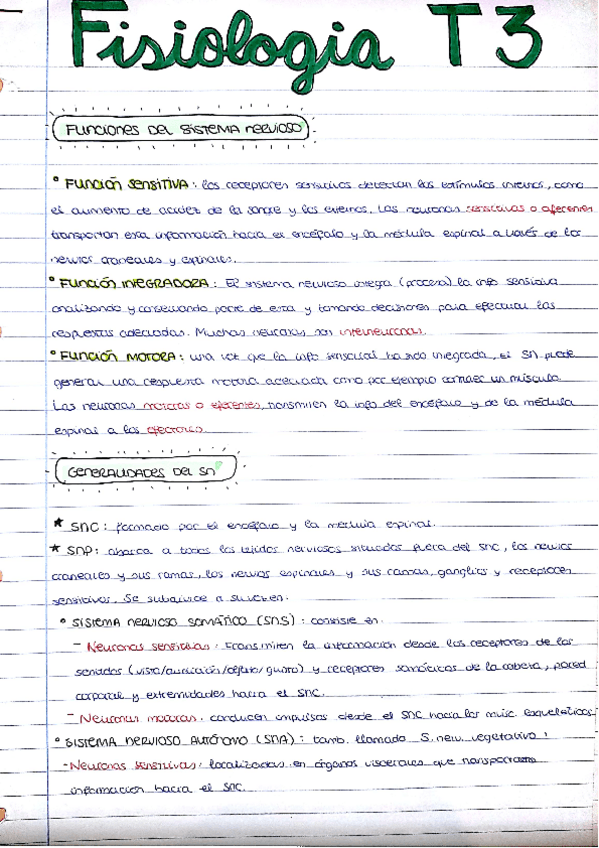 Fisiologia T3
Funciones del sistema nervioso
° Función sensitiva: los receptores sensitivos detectan los estímulos internos, como
el aumento de acidez de la sangre y los externos. Las neuronas sensitivas o aferentes
transportan esta información hacia el encéfalo y la médula espinal a través de los
nervios craneales y espinales.
° Función integradora: El sistema nervioso integra (procesa) la info sensitiva
analizando y conservando parte de esta y tomando decisiones para efectuar las
respuestas adecuadas. Muchas neuronas son interneuronas.
° Función motora: una vez que la info sensorial ha sido integrada, el SN puede
generar una respuesta motora adecuada como por ejemplo contraer un músculo.
Las neuronas motoras o eferentes, transmiten la info del encéfalo y de la médula
espinal a los efectores.
Generalidades del SN
★ SNC: formado por el encéfalo y la médula espinal.
★ SNP: abarca a todos los tejidos nerviosos situados fuera del SNC, los nervios
craneales y sus ramas, los nervios espinales y sus ramas, ganglios y receptores
sensitivos. Se subdivide a su vez en:
° Sistema nervioso somático (SNS): consiste en:
- Neuronas sensitivas: transmiten la información desde los receptores de los
sentidos (vista/audición/olfato/gusto) y receptores somáticos de la cabeza, pared
corporal y extremidades hacia el SNC.
- Neuronas motoras: conducen impulsos desde el SNC hacia los músc. esqueléticos.
° Sistema nervioso autónomo (SNA): tamb. llamado S. nerv. vegetativo:
- Neuronas sensitivas: localizadas en órganos viscerales que transportan
información hacia el SNC.